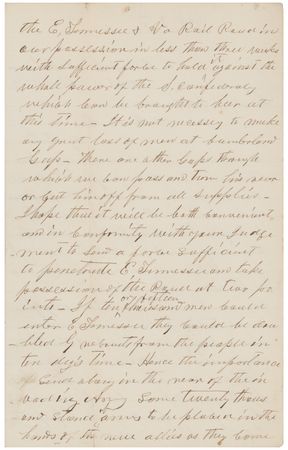 the E, Tennessee & Va Rail Raud in
our possession in less than three weeks
with sufficient force to hold it against the
whole power of the S. Confederacy
which can be brought to bear at
this time - It is not necessary to make
any great loss of men at Cumberland
Gap - There are other Gaps through
which we can pass and turn this rear
or cut them off from all supplies -
I hope that it will be both convenient
and in conformity with your Judge
ment to Send a force Sufficient
to penetrate E, Tennessee and take
possession of the Raud at two po
ints - If ten or fifteen thousand men could
enter E, Tennessee they could be dou
bled by recruit from the people in
ten days time - Hence the importance
of Send along in the rear of the in
vading Army Some twenty thous
and Stand arms to be placed in the
hands of the new allies as they come